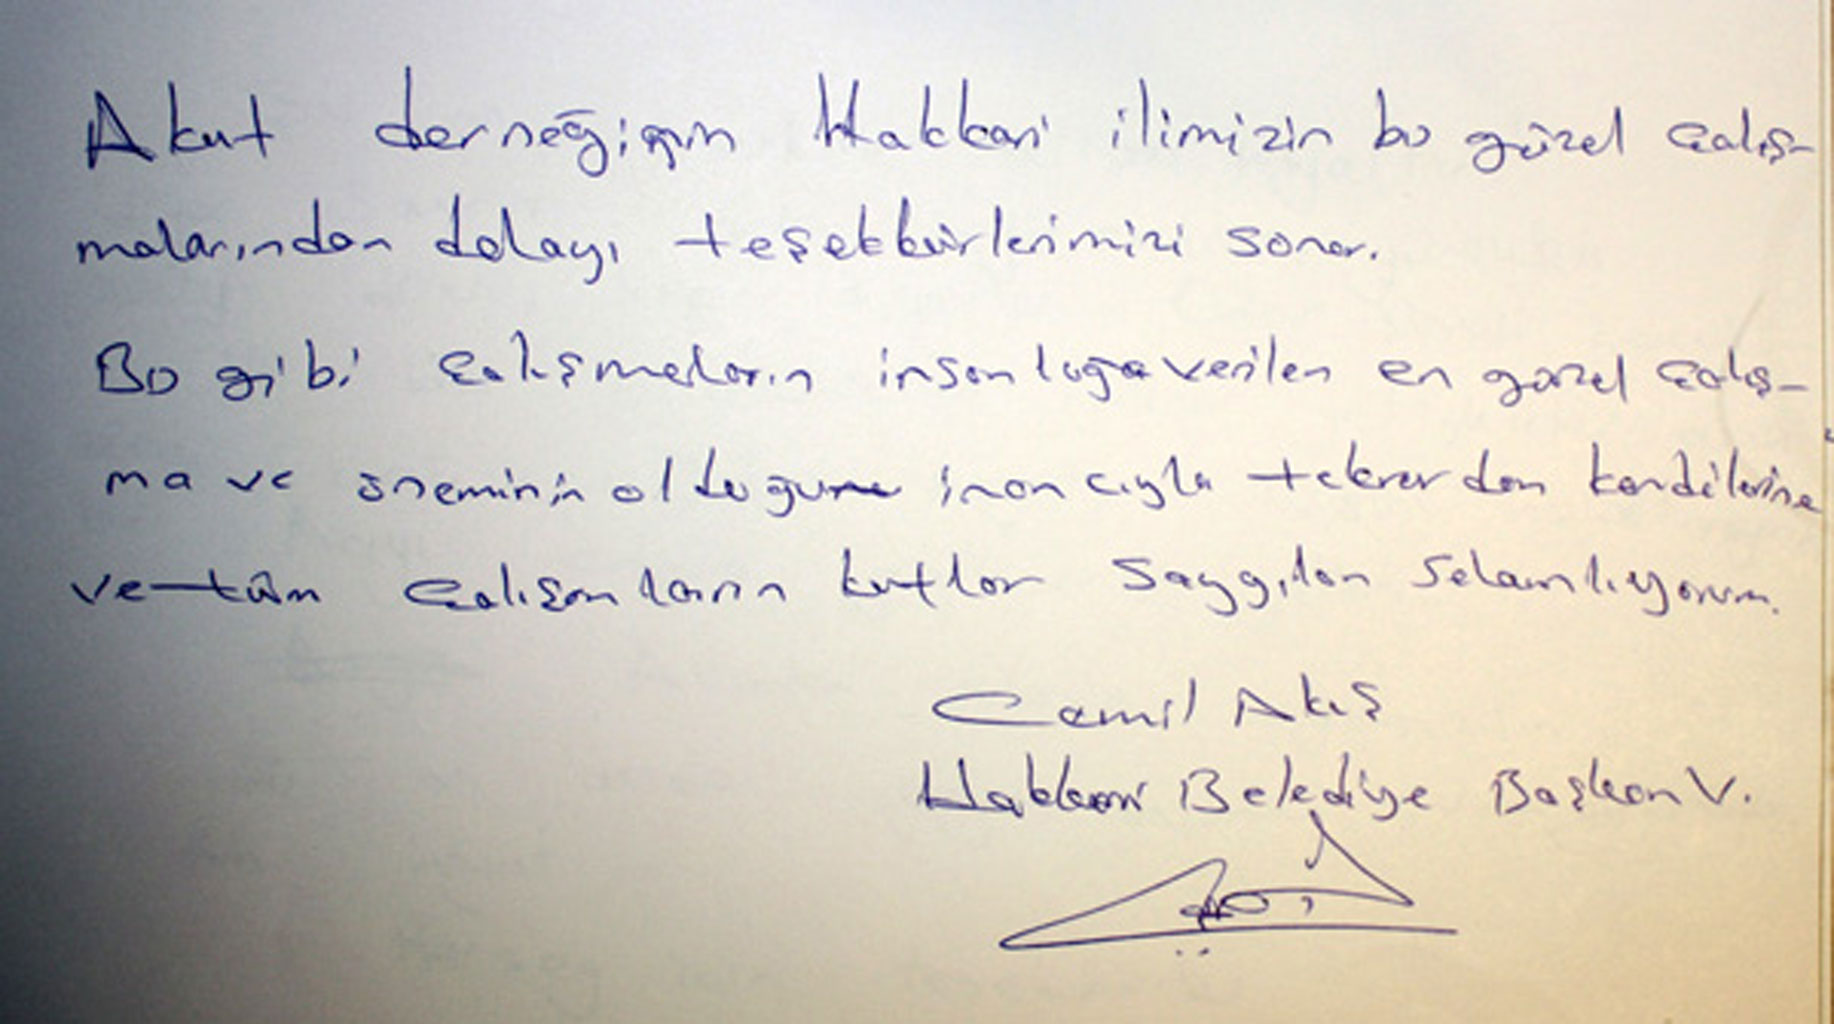 Akut derneğinin Hakkari ilimizin bu güzel çalış-
malarından dolayı teşekkürlerimizi sunar.
Bu gibi çalışmaların insanlığa verilen en güzel çalış-
ma ve öneminin olduğuna inancıyla tekrardan kendilerine
ve tüm çalışanların kutlar saygıları selamlıyorum.
Cemil Akış
Hakkari Belediye Başkan V.